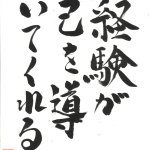 経験が
己を導
いてくれる